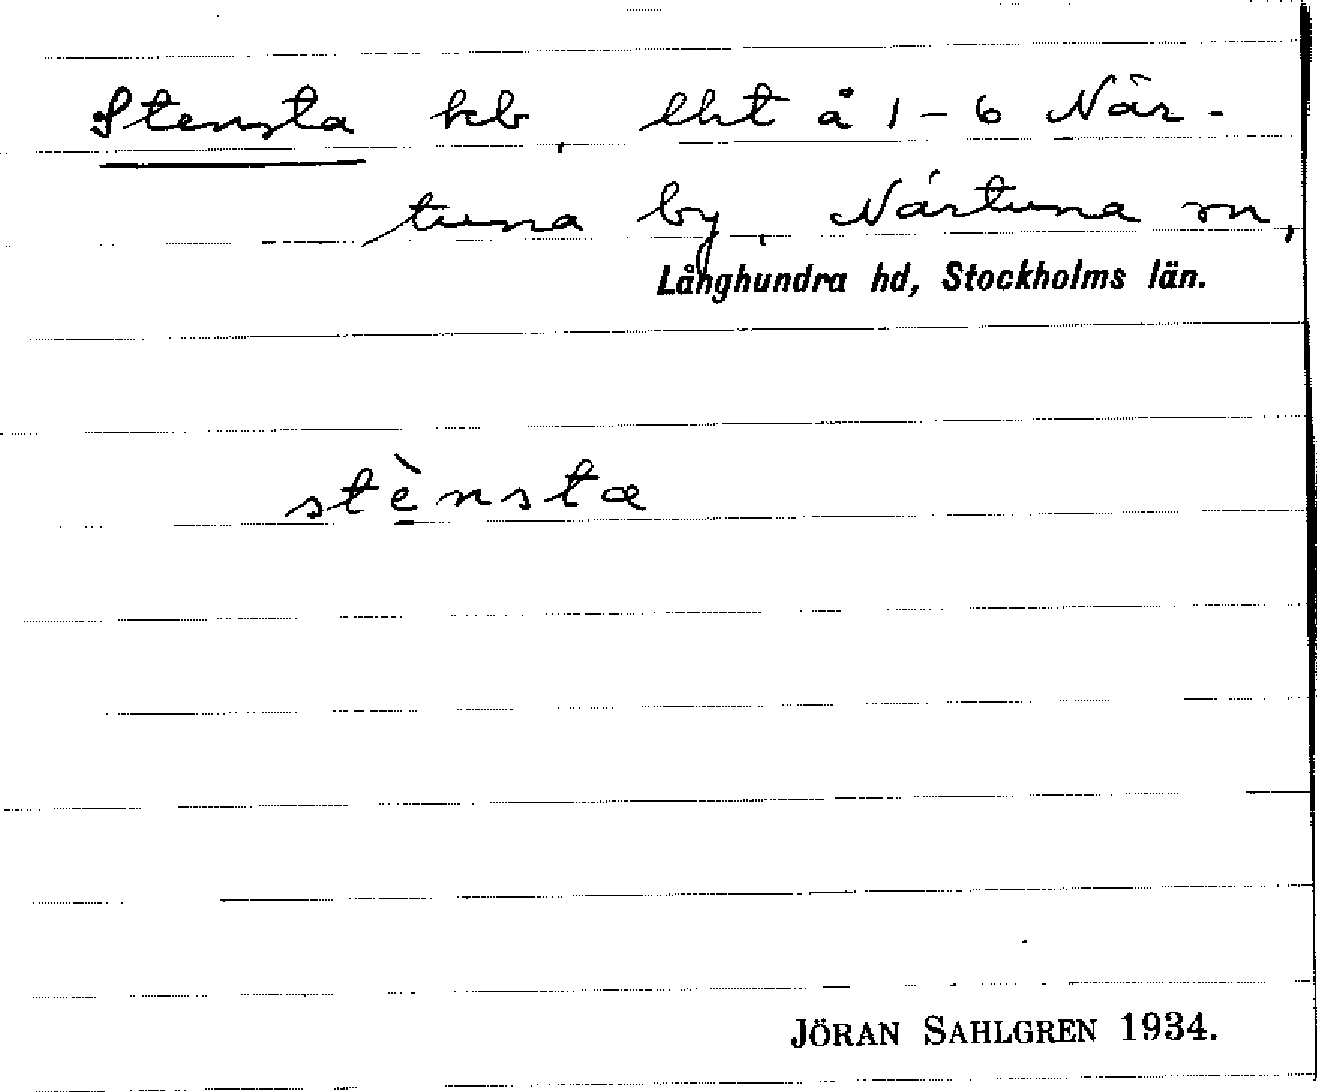 Stensta kb, lht å 1-6 När-
tuna by, Närtuna sn,
Långhundra hd, Stockholms län.
stè̠nsta
JÖRAN SAHLGREN 1934.